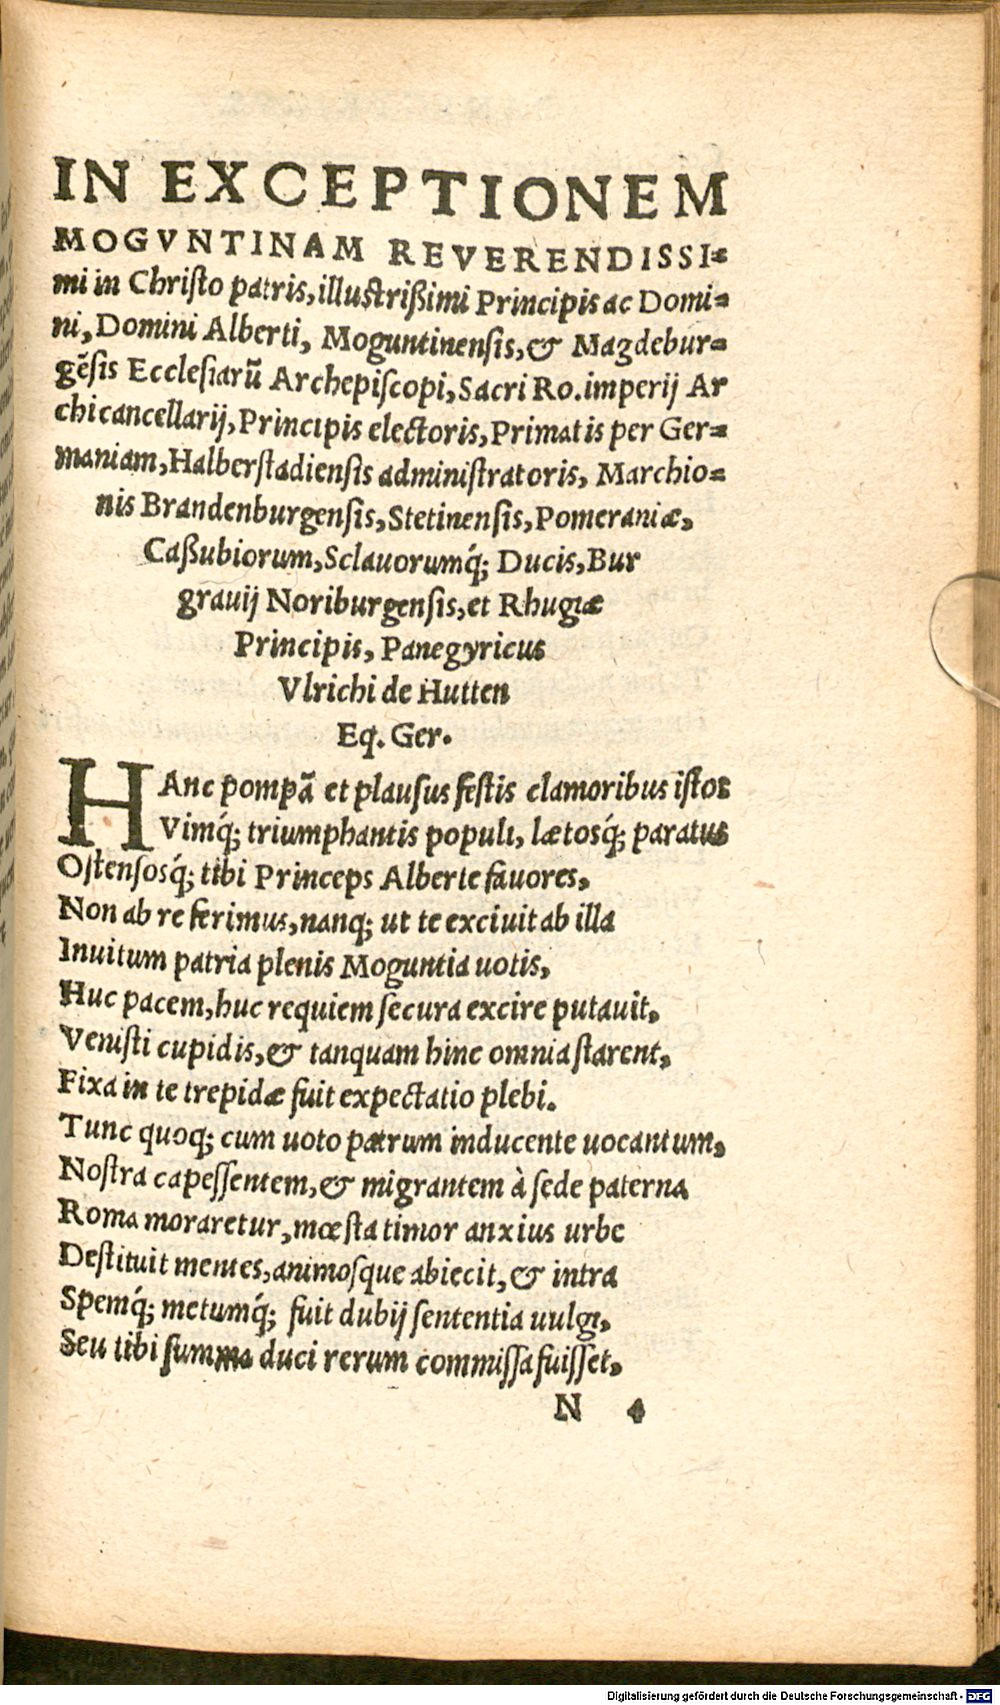 IN EXCEPTIONEM
MOGVNTINAM REVERENDISSI=
mi in Christo patris, illustrißimi Principis ac Domi=
ni, Domini Alberti, Moguntinensis, & Magdebur=
gēsis Ecclesiarū Archepiscopi, Sacri Ro. imperij Ar
chicancellarij, Principis electoris, Primatis per Ger=
maniam, Halberstadiensis administratoris, Marchio=
nis Brandenburgensis, Stetinensis, Pomeraniæ,
Caßubiorum, Sclauorumq́; Ducis, Bur
grauij Noriburgensis, et Rhugiæ
Principis, Panegyricus
Vlrichi de Hutten
Eq. Ger.
HAnc pompā et plausus festis clamoribus istos
Vimq́; triumphantis populi, lætosq́; paratus
Ostensosq́; tibi Princeps Alberte fauores,
Non ab re ferimus, nanq; ut te exciuit ab illa
Inuitum patria plenis Moguntia uotis,
Huc pacem, huc requiem secura excire putauit,
Venisti cupidis, & tanquam hinc omnia starent,
Fixa in te trepidæ fuit expectatio plebi.
Tunc quoq; cum uoto patrum inducente uocantum,
Nostra capessentem, & migrantem à sede paterna
Roma moraretur, mœsta timor anxius urbe
Destituit mentes, animosque abiecit, & intra
Spemq́; metumq́; fuit dubij sententia uulgi,
Seu tibi summa duci rerum commissa fuisset,
N 4
Digitalisierung gefördert durch die Deutsche Forschungsgemeinschaft - DFG